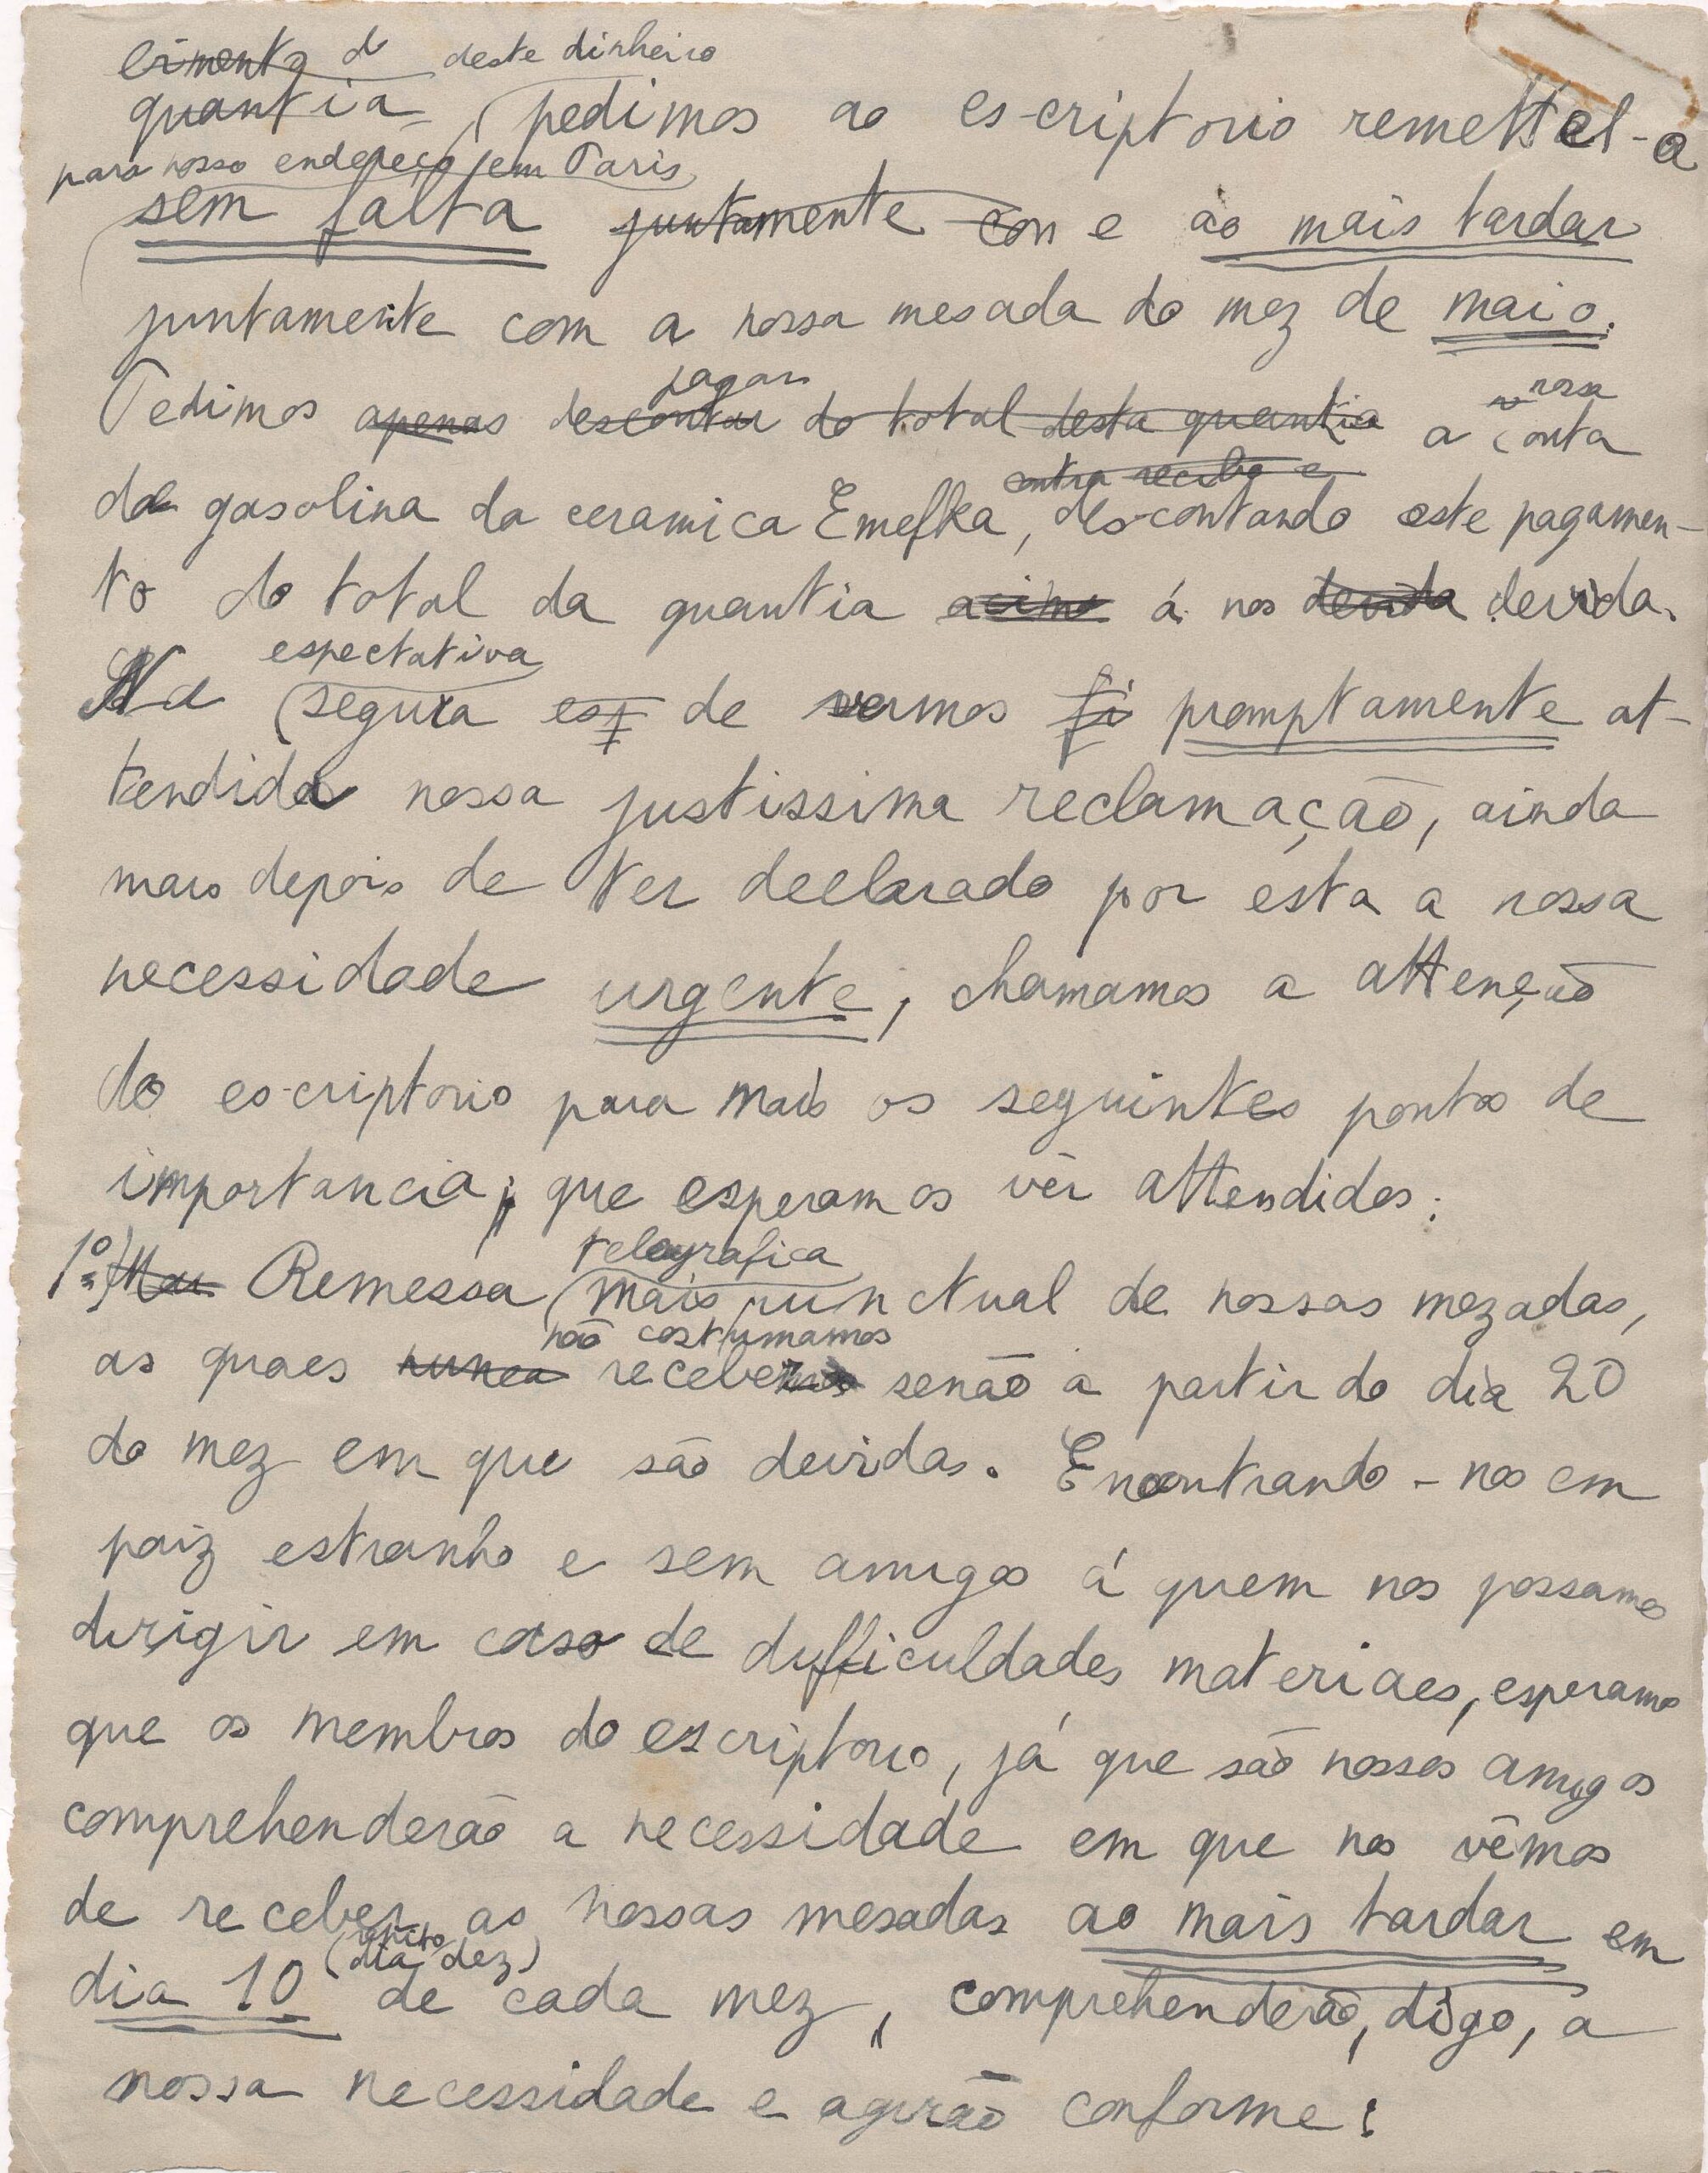 deste dinheiro
quantia, pedimos ao escriptorio remettel-a
para nosso endereço em Paris
sem falta juntamente con e ao mais tardar
juntamente com a nossa mesada do mez de maio.
pagar nossa
Pedimos apenas descontar do total desta quantia a conta
contra recibo e
da gasolina da ceramica Emefka, descontando este pagamen-
to do total da quantia acima á nos devida devida.
espectativa
Na segura de vermos promptamente at-
tendida nossa justissima reclamação, ainda
mais depois de ter declarado por esta a nossa
necessidade urgente, chamamos a attenção
do escriptorio para mais os seguintes pontos de
importancia, que esperamos vêr attendidos:
telegrafica
1º) Remessa mais punctual de nossas mezadas,
não costumamos
as quaes nunca receber senão a partir do dia 20
do mez em que são devidas. Encontrando-nos em
paiz estranho e sem amigos á quem nos possamos
dirigir em caso de difficuldades materiaes, esperamos
que os membros do escriptorio, já que são nossos amigos
comprehenderão a necessidade em que nos vêmos
de receber as nossas mesadas ao mais tardar em
(dia dez)
dia 10 de cada mez, comprehenderão, digo, a
nossa necessidade e agirão conforme;